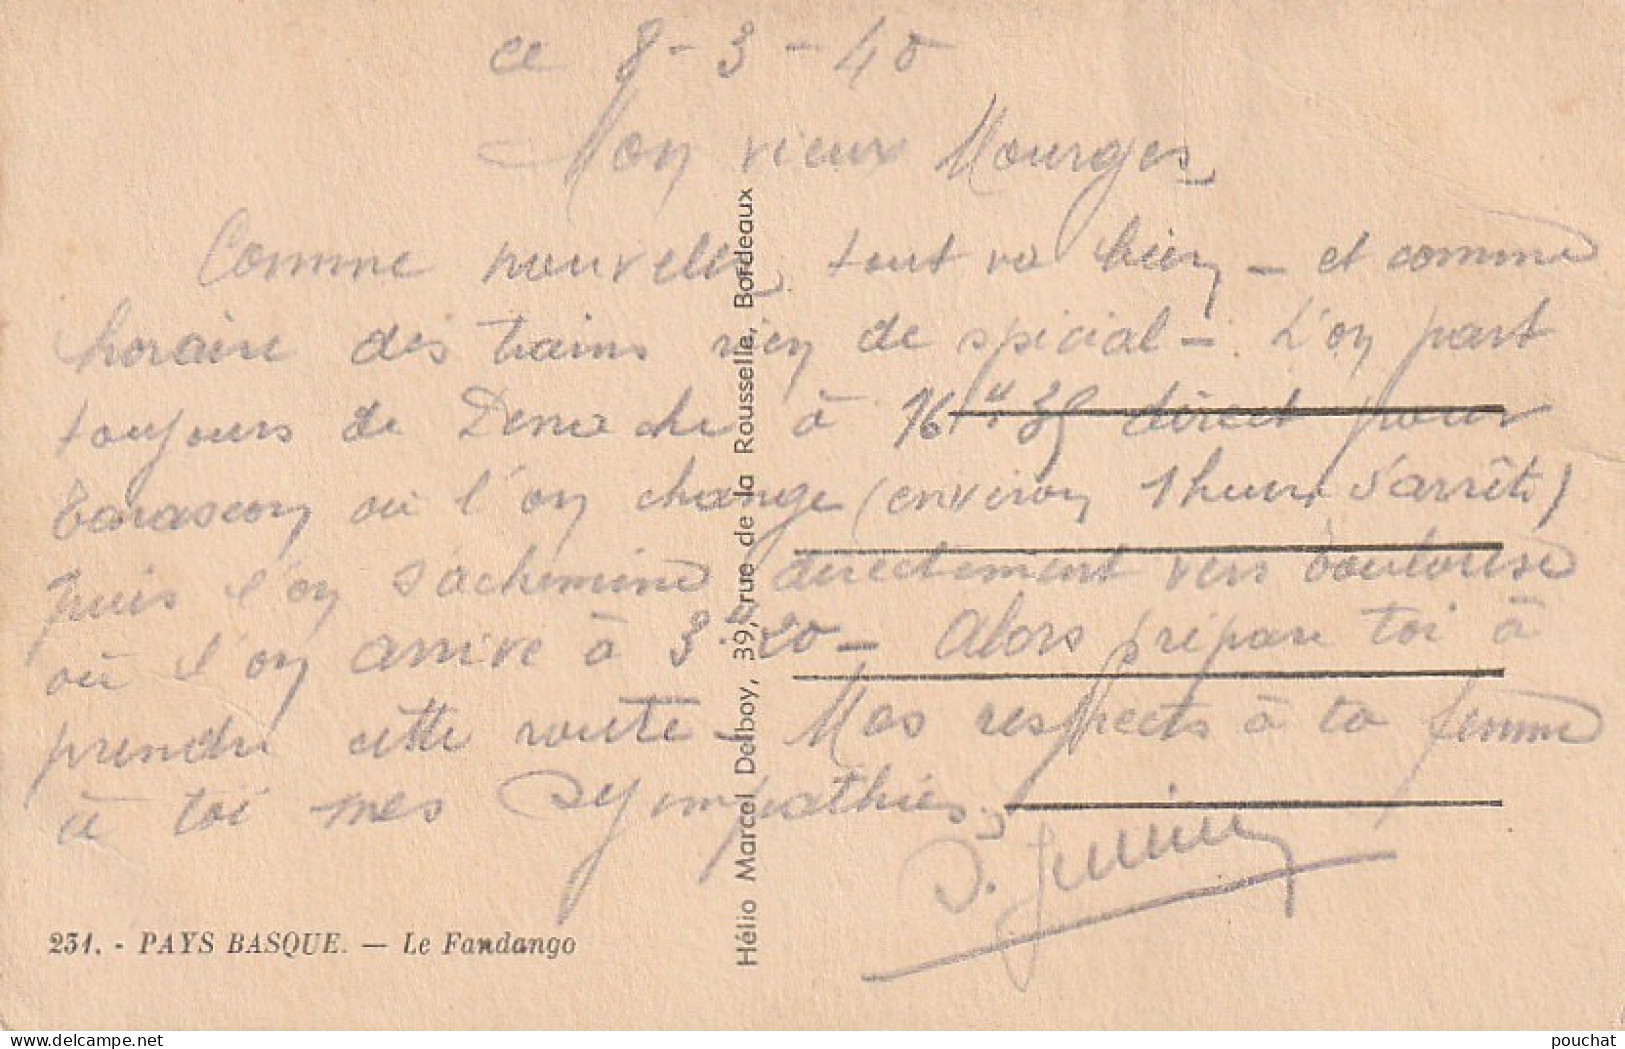 ce 8-3-40
Mon vieux Mourges
Comme nouvelles tout va bien - et comme
horaire des trains rien de spécial - L'on part
toujours de à 16 H 35 direct pour
Tarascon où l'on change (environ 1 heure d'arrêt)
puis l'on s'achemine directement vers Toulouse
où l'on arrive à 3 H 20 - Alors prépare toi à
prendre cette route - Mes respects à ta femme
à toi mes sympathies.
231. - PAYS BASQUE. — Le Fandango
Hélio Marcel Delboy, 39, rue de la Rousselle, Bordeaux
pouchat